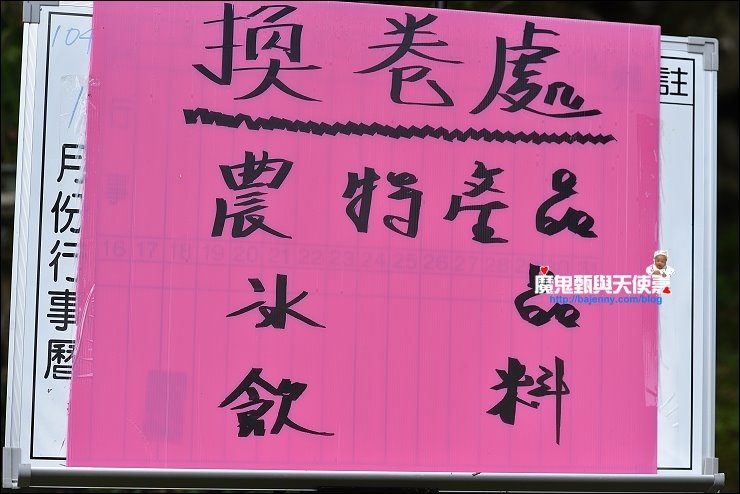 換卷處
農特產品
冰品
飲料
104
月份行事曆
註
16 17 18 19 20 21 22 23 24 25 26 27 28
魔鬼甄與天使嘉
http://bajenny.com/blog